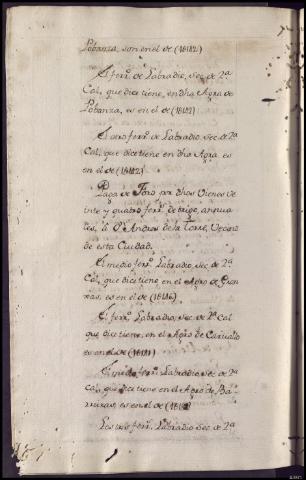 Pobanza, son en el de (1618)
El ferr.º de Labradio, sec. de 2.ª
Cal, que dice tiene, en dha Agra de
Pobanza, es en el de (1618)
El otro ferr.º de Labradio, sec. de 2.ª
Cal, que dice tiene en dha Agra, es
en el de
Paga de Foro por dhos Vienes ve
inte y quatro ferr.s de trigo, annua
les, á Dn. Andres de la Torre, Vecino
de esta Ciudad.
El medio ferr.º Labradio, sec. de 2.ª
Cal, que dice tiene, en el Agro de
es en el de
El ferr.º Labradio, sec. de 2.ª Cal
que dice tiene, en el Agro de Carvallo
es en el de
El medio ferr.º Labradio, sec. de 2.ª
Cal, que dice tiene en el Agro de
es en el de
Los tres ferr.s Labradio sec. de 2.ª